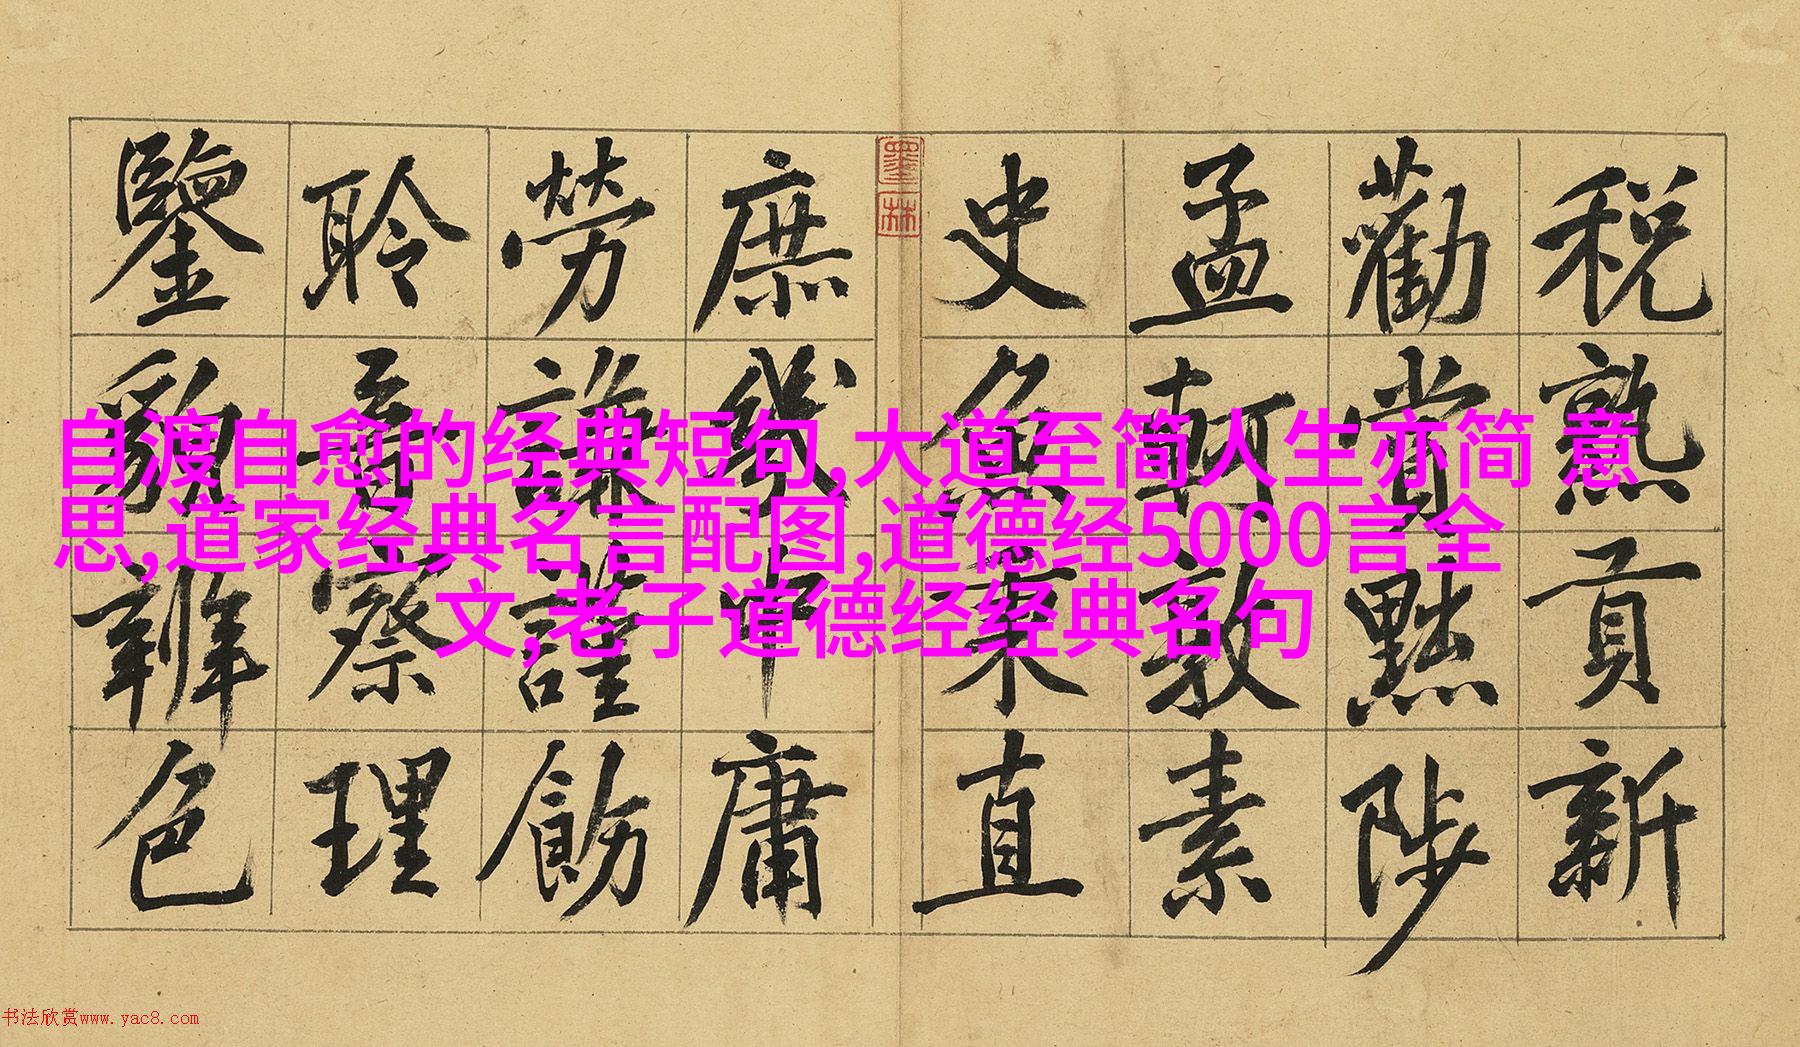 税熟貢新
勸賞黜陟
孟軻敦素
史魚秉直
庶幾中庸
勞謙謹飭
聆音察理
鑒貌辨色
墨林
自渡自愈的经典短句,大道至简人生亦简 意
思,道家经典名言配图,道德经5000言全
文,老子道德经经典名句
书法欣赏www.yac8.com